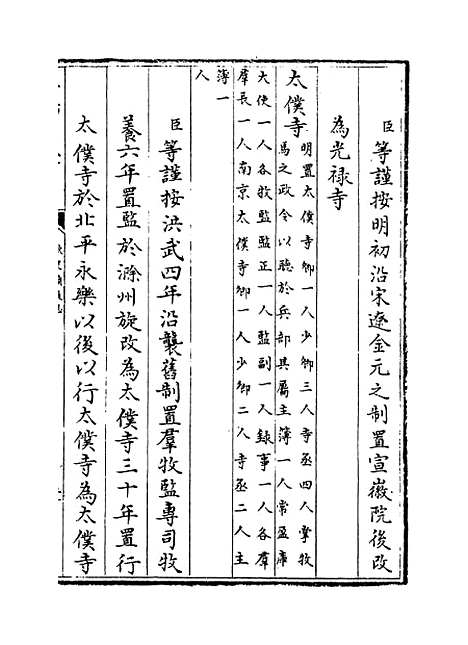 臣等謹按明初沿宋遼金元之制置宣徽院後改
為光禄寺
太僕寺明置太僕寺卿一人少卿三人寺丞四人掌牧
馬之政令以聽於兵部其屬主簿一人常盈庫
大使一人各牧監監正一人監副一人録事一人各羣
羣長一人南京太僕寺卿一人少卿二人寺丞二人主
簿一
人
臣等謹按洪武四年沿襲舊制置羣牧監專司牧
養六年置監於滁州旋改為太僕寺三十年置行
太僕寺於北平永樂以後以行太僕寺為太僕寺